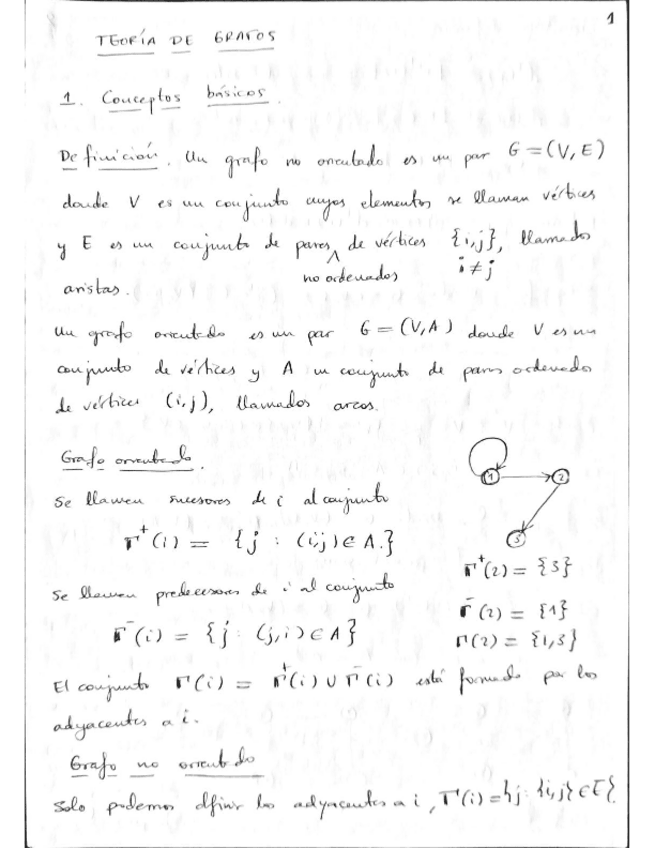 1
TEORÍA DE GRAFOS
1. Conceptos básicos.
Definición. Un grafo no orientado es un par G = (V, E)
donde V es un conjunto cuyos elementos se llaman vértices
y E es un conjunto de pares no ordenados de vértices {i,j}, llamados
i ≠ j
aristas.
Un grafo orientado es un par G = (V, A) donde V es un
conjunto de vértices y A un conjunto de pares ordenados
de vértices (i,j), llamados arcos.
Grafo orientado.
1 2
3
Se llaman sucesores de i al conjunto
Γ⁺(i) = {j : (i,j) ∈ A.}
Γ⁺(2) = {3}
Se llaman predecesores de i al conjunto
Γ⁻(2) = {1}
Γ⁻(i) = {j : (j,i) ∈ A}
Γ(2) = {1,3}
El conjunto Γ(i) = Γ⁺(i) ∪ Γ⁻(i) está formado por los
adyacentes a i.
Grafo no orientado
Solo podemos dfinir los adyacentes a i, Γ(i) = {j : {i,j} ∈ E}.